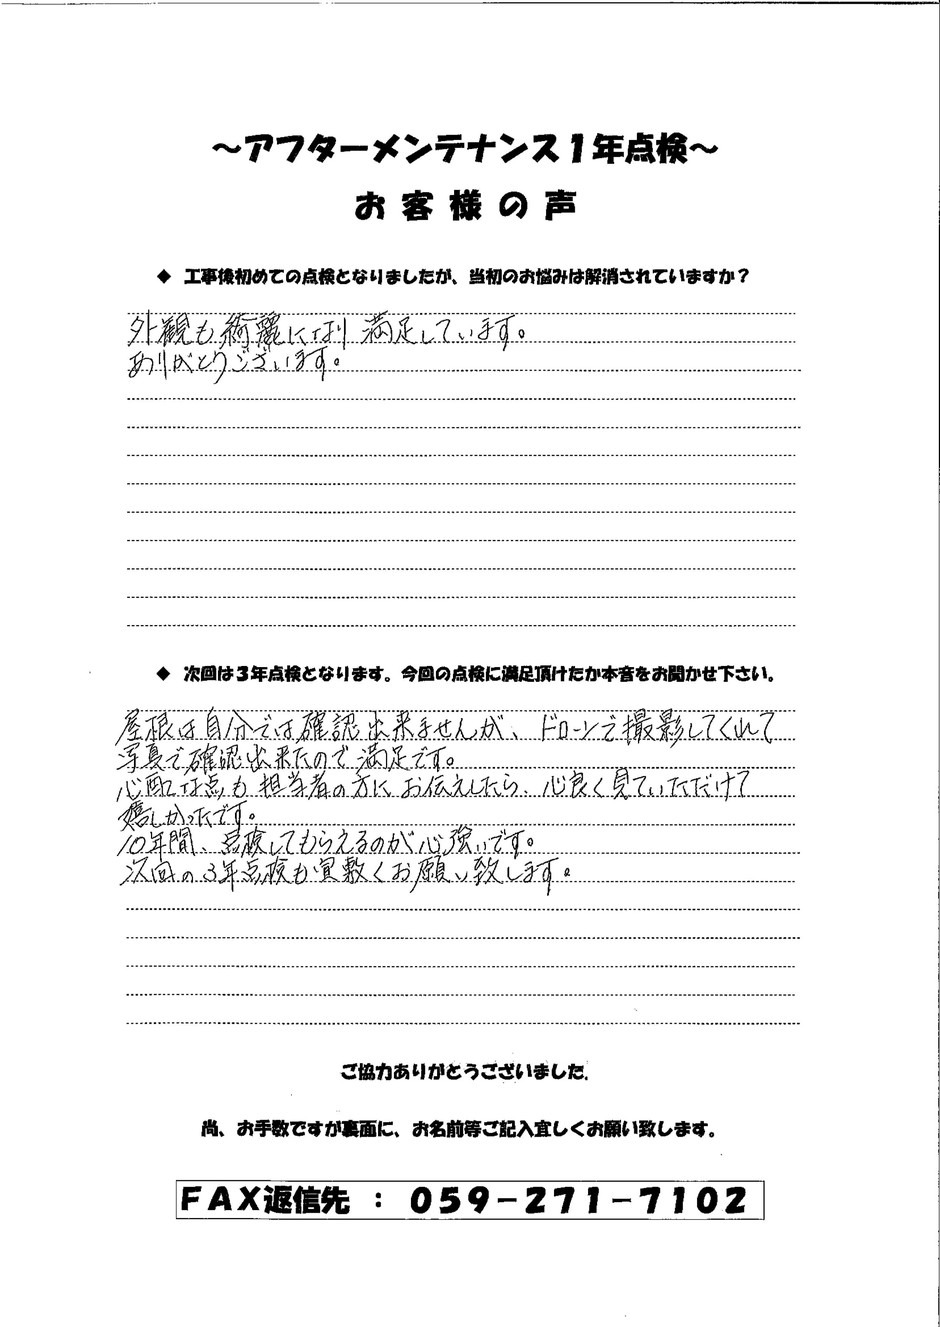 ～アフターメンテナンス1年点検～
お客様の声
◆ 工事後初めての点検となりましたが、当初のお悩みは解消されていますか？
外観も綺麗になり 満足しています。
ありがとうございます。
◆ 次回は3年点検となります。今回の点検に満足頂けたか本音をお聞かせ下さい。
屋根は自分では確認出来ませんが、ドローンで撮影してくれて
写真で確認出来たので満足です。
心配な点も担当者の方にお伝えしたら、心良く見ていただけて
嬉しかったです。
10年間、点検してもらえるのが心強いです。
次回の3年点検も宜敷くお願い致します。
ご協力ありがとうございました。
尚、お手数ですが裏面に、お名前等ご記入宜しくお願い致します。
FAX返信先 ： 059－271－7102